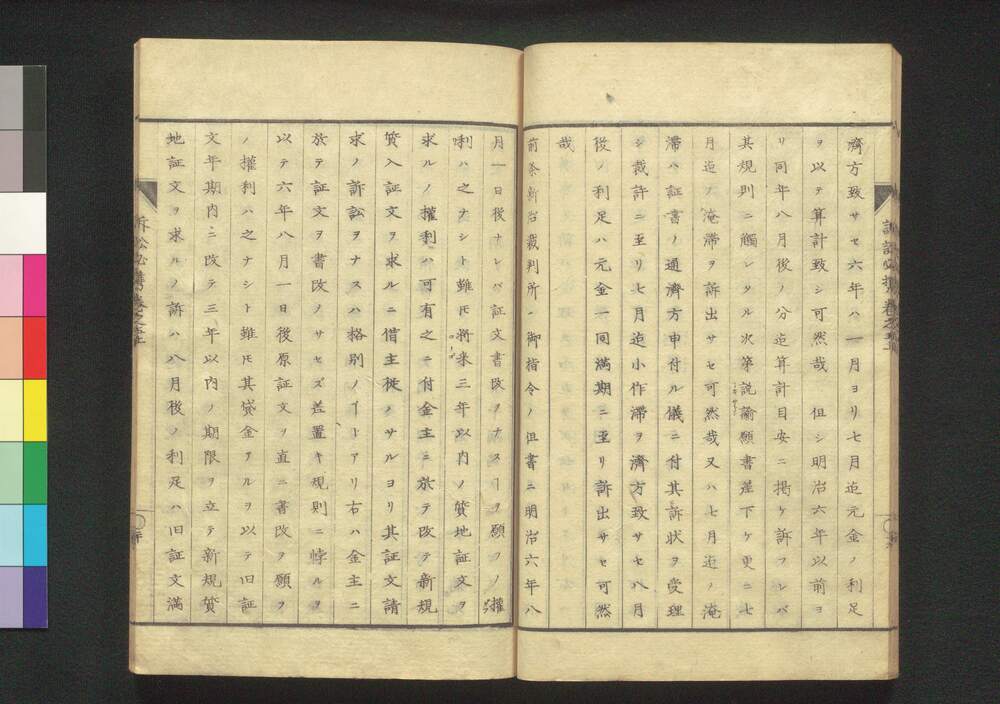 濟方致サセ六年ハ一月ヨリ七月迄元金ノ利足
ヲ以テ算計致シ可然哉 但シ明治六年以前ヨ
リ同年八月後ノ分迄算計目安ニ掲ケ訴フレバ
其規則ニ觸レタル次第説諭願書差下ケ更ニ七
月迄ノ淹滞ヲ訴出サセ可然哉又ハ七月迄ノ淹
滞ハ証書ノ通濟方申付ル儀ニ付其訴状ヲ受理
シ裁許ニ至リ七月迄小作滞ヲ濟方致サセ八月
後ノ利足ハ元金一同満期ニ至リ訴出サセ可然
哉
前条新治裁判所ヘ御指令ノ但書ニ明治六年八
月一日後ナレバ証文書改ヲナスヿヲ願フノ權
利ハ之ナシト雖モ将来三年以内ノ質地証文ヲ
求ルノ權利ハ可有之ニ付金主ニ放テ改テ新規
質入証文ヲ求ルニ借主従ハサルヨリ其証文請
求ノ訴訟ヲナスハ格別ノヿトアリ右ハ金主ニ
放テ証文ヲ書改メサセズ差置キ規則ニ悖ルヲ
以テ六年八月一日後原証文ヲ直ニ書改ヲ願フ
ノ權利ハ之ナシト雖モ其貸金アルヲ以テ旧証
文年期内ニ改テ三年以内ノ期限ヲ立テ新規質
地証文ヲ求ルノ訴ハ八月後ノ利足ハ旧証文満
訴訟必携巻之五